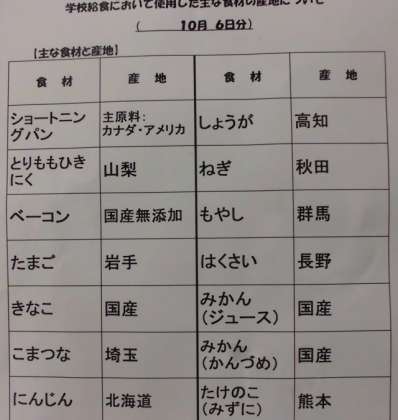 学校給食において使用した主な食材の産地について
( 10月 6日分)
【主な食材と産地】
食 材 産 地 食 材 産 地
ショートニン
グパン
主原料:
カナダ・アメリカ
しょうが 高知
とりももひき
にく
山梨 ねぎ 秋田
ベーコン 国産無添加 もやし 群馬
たまご 岩手 はくさい 長野
きなこ 国産 みかん
(ジュース)
国産
こまつな 埼玉 みかん
(かんづめ)
国産
にんじん 北海道 たけのこ
(みずに)
熊本